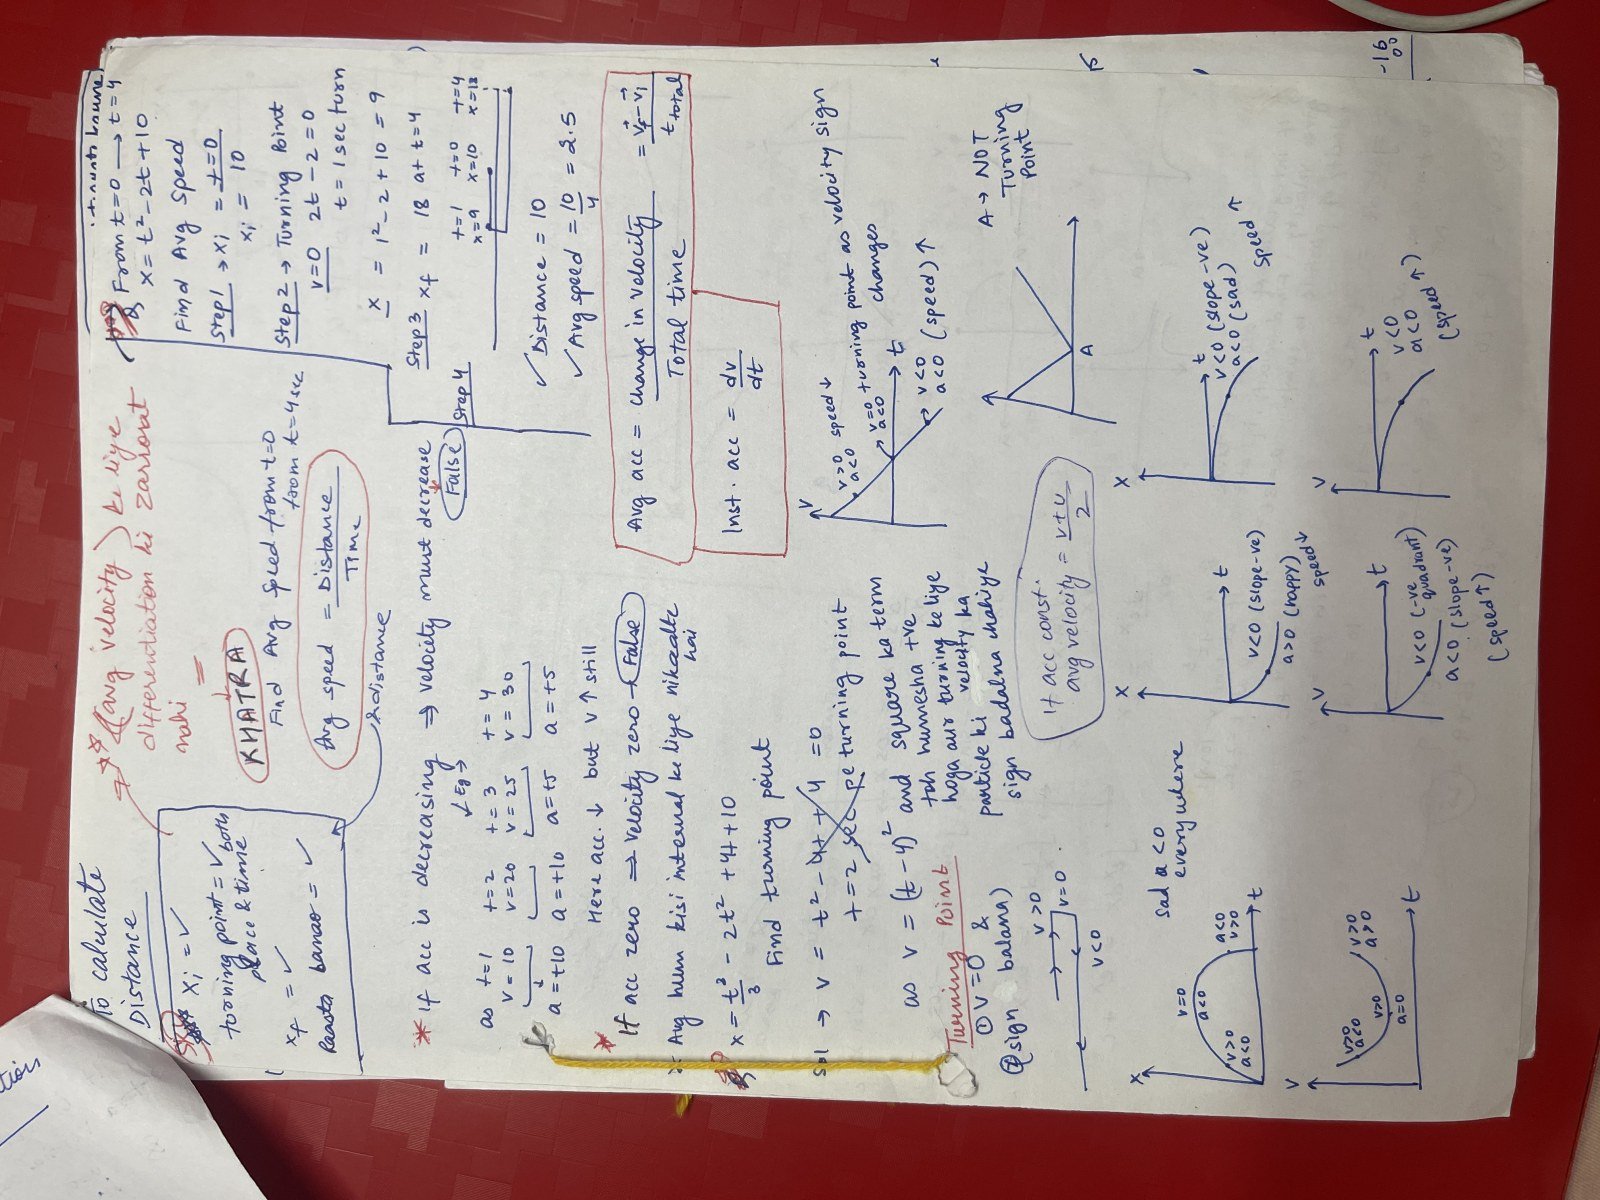 To calculate
Distance
xi = ✓
turning point = ✓ both
place & time
xf = ✓
Raasta banao = ✓
** (avg velocity) ke liye
differentiation ki zarrorat
nahi
KHATRA
Find Avg speed from t=0
from t=4sec
Avg speed = Distance
Time
distance
From t=0 → t=4
x = t² - 2t + 10
Find Avg Speed
Step1 → xi = t=0
xi = 10
Step2 → Turning Point
v=0 2t-2=0
t = 1 sec turn
x = 1² - 2 + 10 = 9
Step3 xf = 18 at t=4
Step4
t=1 t=0 t=4
x=9 x=10 x=18
✓ Distance = 10
✓ Avg speed = 10/4 = 2.5
* If acc is decreasing ⇒ velocity must decrease
False
← Eg →
as t=1 t=2 t=3 t=4
v=10 v=20 v=25 v=30
a=+10 a=+10 a=+5 a=+5
Here acc. ↓ but v ↑ still
* If acc zero ⇒ velocity zero → False
Avg hum kisi interval ke liye nikaalte
hai
Avg acc = change in velocity = v⃗f - v⃗i
Total time t total
Inst. acc = dv
dt
x = t³/3 - 2t² + 4t + 10
Find turning point
sol → v = t² - 4t + 4 = 0
t = 2 sec pe turning point
as v = (t-4)² and square ka term
toh humesha +ve
hoga aur turning ke liye
particle ki velocity ka
sign badalna chahiye
Turning Point
① v=0 &
② sign balana)
v>0
v=0
v<0
If acc const.
avg velocity = v+u
2
v
v>0 speed ↓
a<0
v=0 turning point as velocity sign
a<0 changes
t
v<0
a<0 (speed) ↑
A
A → NOT
Turning
Point
x
v=0
a<0
v>0
a<0
a<0
v>0
t
sad a<0
everywhere
x
t
v<0 (slope -ve)
a>0 (happy)
speed ↓
x
t
v<0 (slope -ve)
a<0 (sad)
speed ↑
v
v>0
a<0
v>0
a=0
v>0
a>0
t
v
t
v<0 (-ve
quadrant)
a<0 (slope -ve)
(speed ↑)
v
t
v<0
a<0
(speed ↑)
-16
00